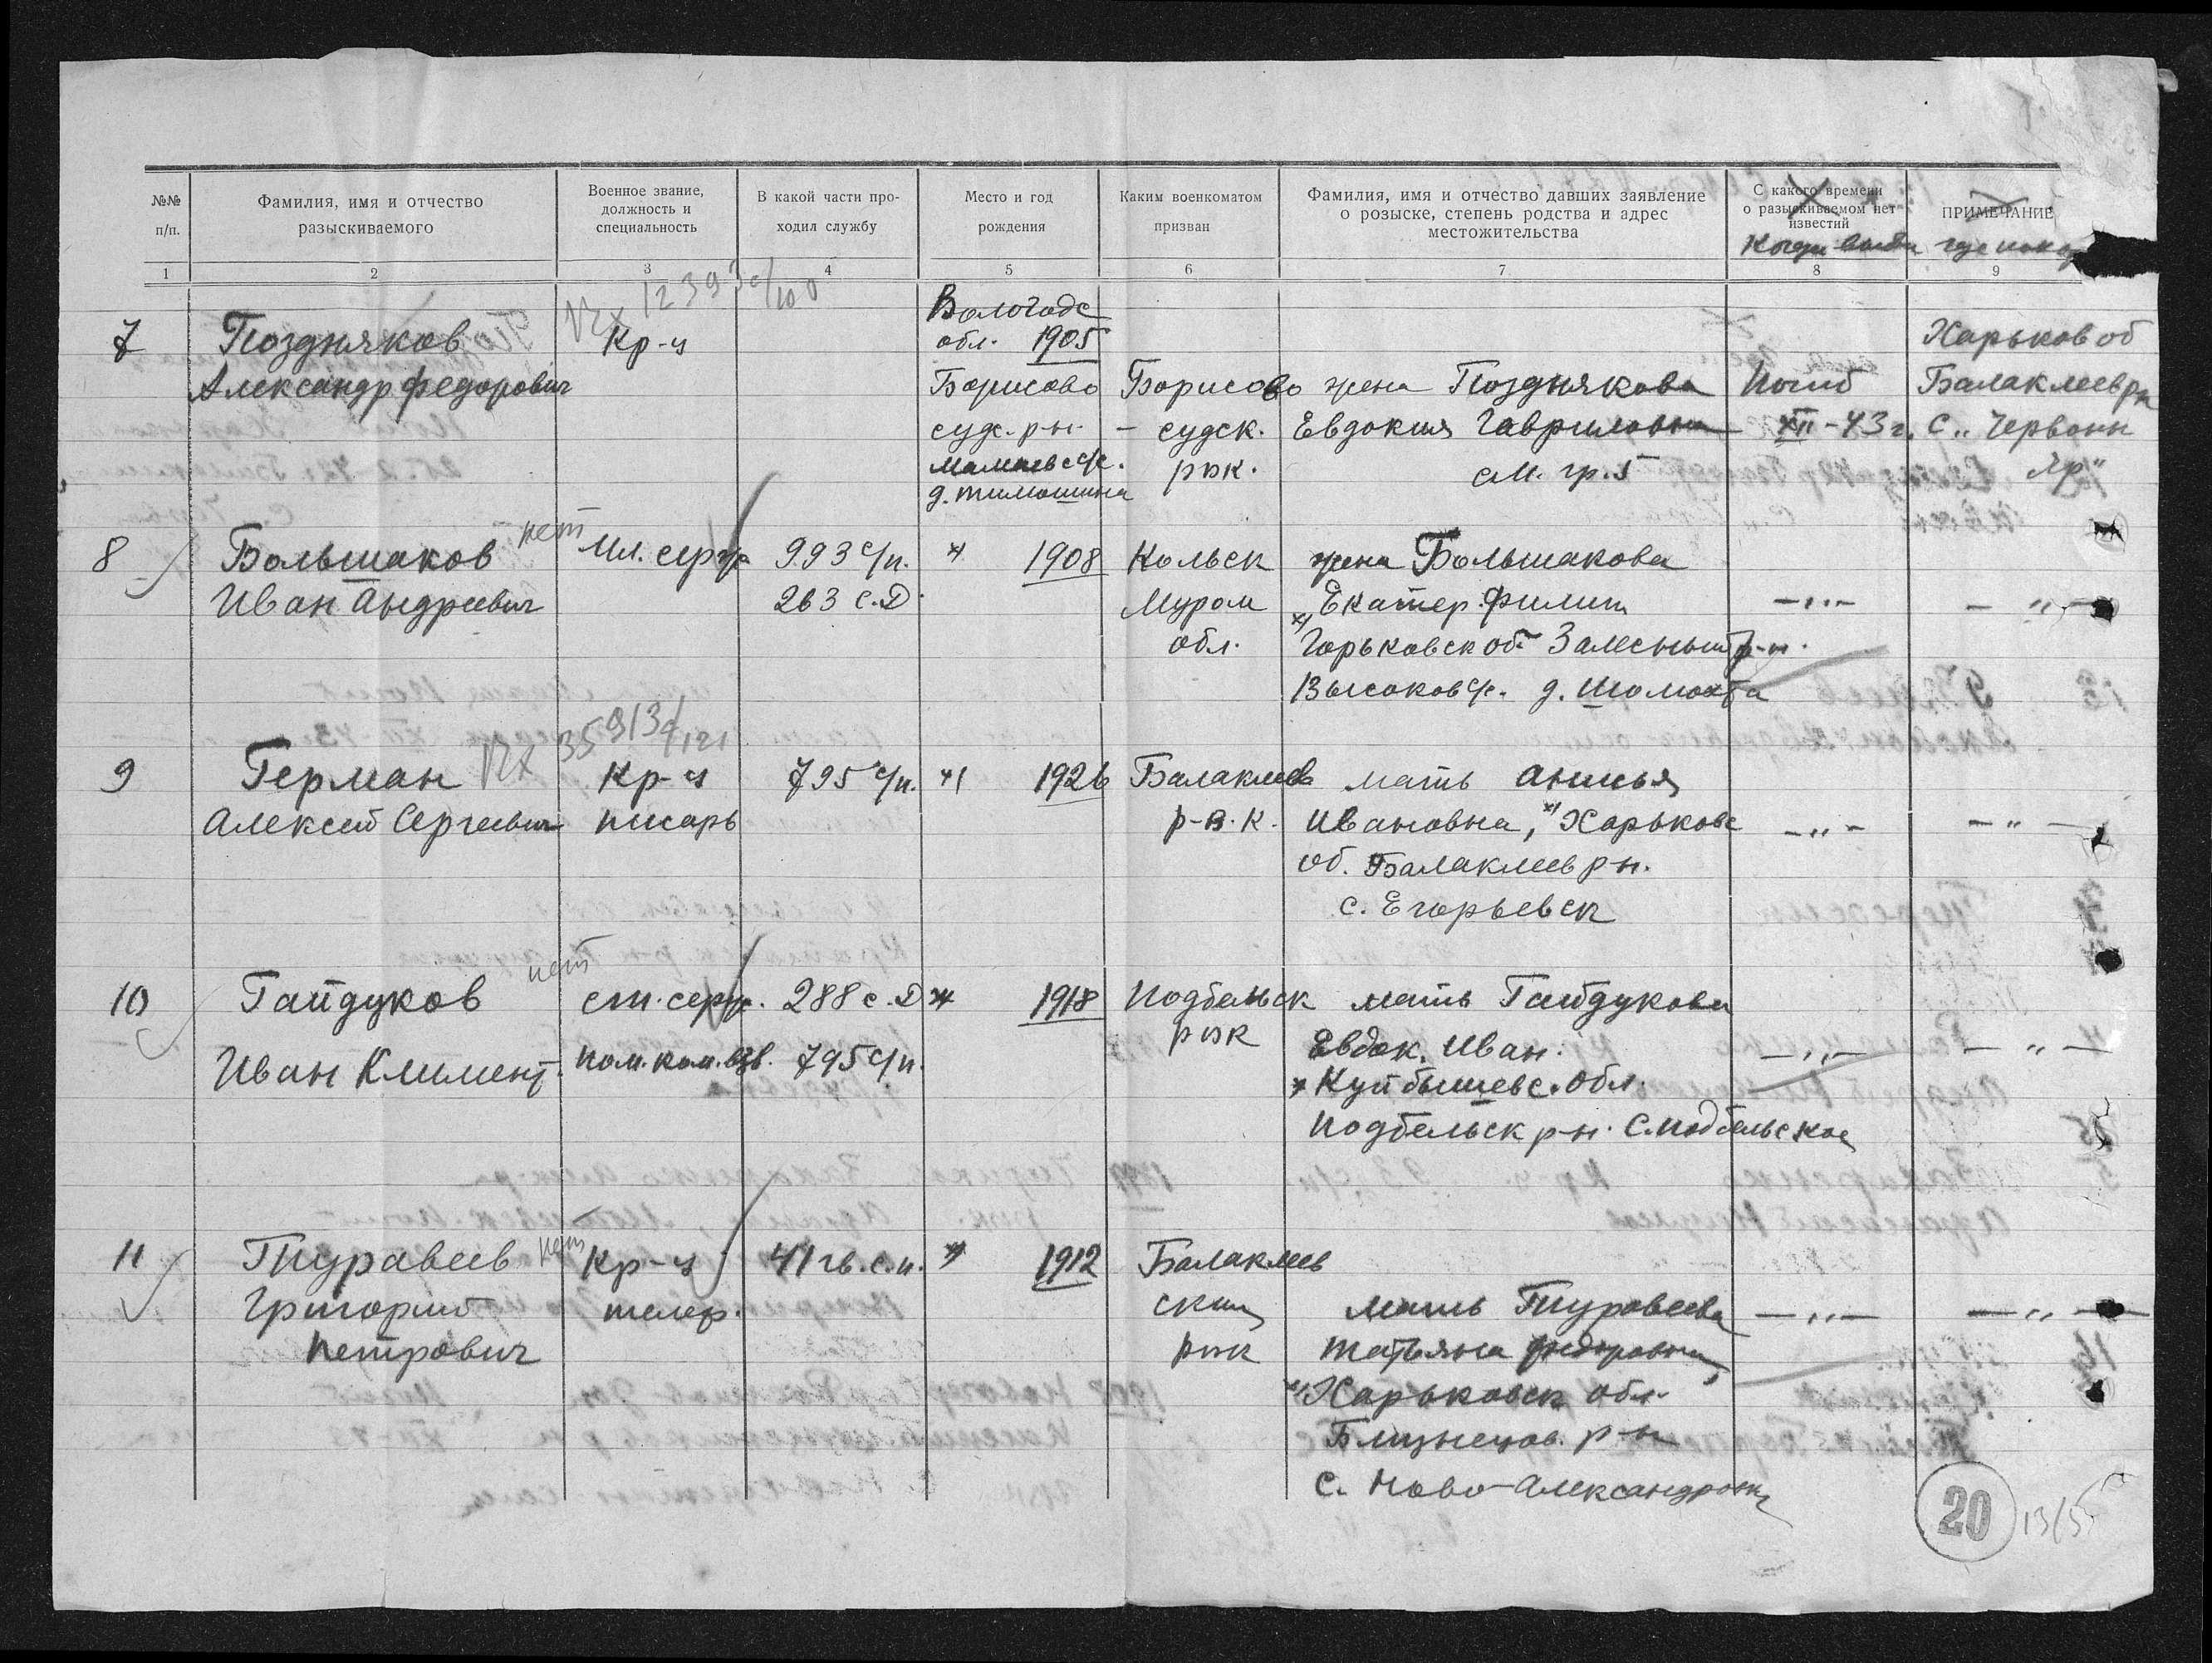 №№ п/п.
Фамилия, имя и отчество разыскиваемого
Военное звание, должность и специальность
В какой части проходил службу
Место и год рождения
Каким военкоматом призван
Фамилия, имя и отчество давших заявление о розыске, степень родства и адрес местожительства
С какого времени о разыскиваемом нет известий
ПРИМЕЧАНИЕ
Когда
где
1 2 3 4 5 6 7 8 9
Вх 12393с/100
7 Поздняков Кр-ц Вологодс обл. 1905 Харьков об
Александр Федорович Борисово Борисово жена Позднякова Погиб Балаклеев рн
судс. р-н - судск. Евдокия Гавриловна XII-43г. С. „Червонн
Мамаев с/с. рвк. см. гр. 5 Яр"
д. Тимошина
нет
8 Большаков Мл. серж 993 с/п. *) 1908 Кольск жена Большакова
Иван Андреевич 263 с.Д. Муром Екатер. Филип -„- -„-
обл. *) Горьковск об. Залесный р-н.
Высоков с/с. д. Шомохта
Вх 35913с/121
9 Герман Кр-ц 795 с/п. *) 1926 Балаклеев мать Анисья
Алексей Сергеевич писарь р-в.к. Ивановна, *) Харьковс -„- -„-
об. Балаклеев рн.
с. Егорьевск
нет
10 Гайдуков ст. серж. 288 с.Д * 1918 Подбельск мать Гайдукова
Иван Климент. пом. ком. взв. 795 с/п. рвк Евдок. Иван. -„- -„-
* Куйбышевс. обл.
Подбельск р-н. С. Подбельское
нет
11 Туравеев Кр-ц 41 гв.с.п. *) 1912 Балаклеев
Григорий телеф. ский мать Туравеева -„- -„-
Петрович рвк Татьяна Федоровна,
*) Харьковск обл.
Близнецов. р-н
с. Ново-Александровк
20 13/55